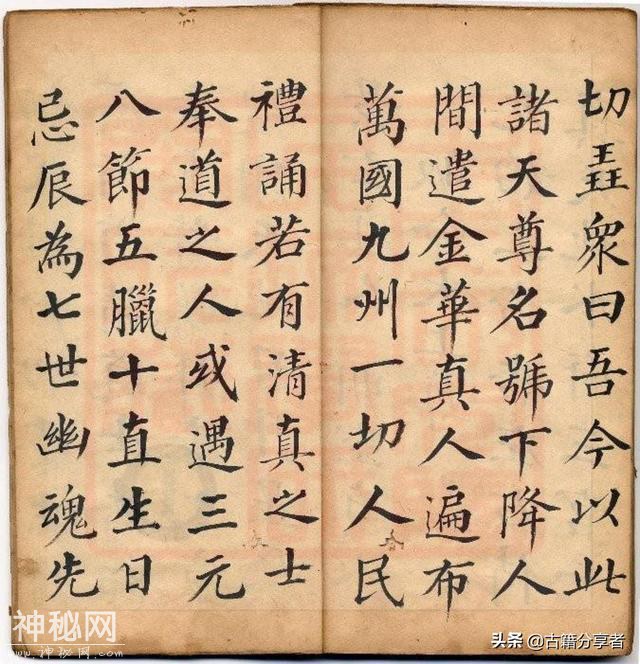 切眾曰吾今以此
諸天尊名號下降人
間遣金華真人遍布
萬國九州一切人民
禮誦若有清真之士
奉道之人或遇三元
八節五臘十直生日
忌辰為七世幽魂先
神秘网
www.shenmiwang.com
头条 @古籍分享者